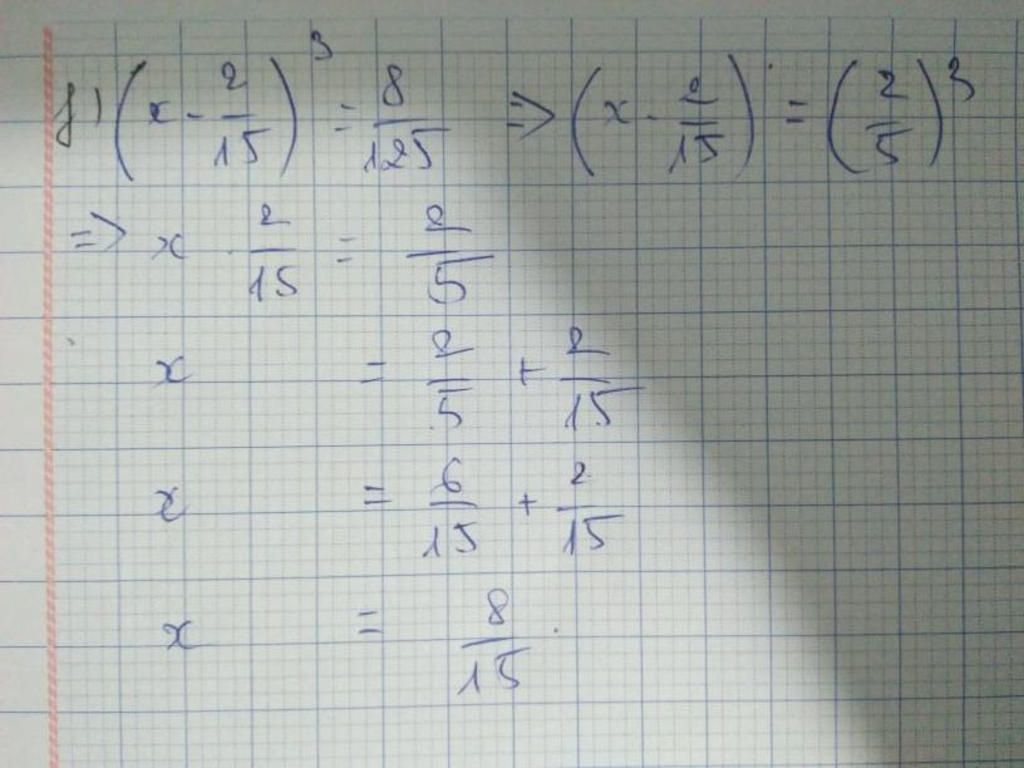 f) (x - 2/15)^3 = 8/125 => (x - 2/15) = (2/5)^3
=> x - 2/15 = 2/5
x = 2/5 + 2/15
x = 6/15 + 2/15
x = 8/15.